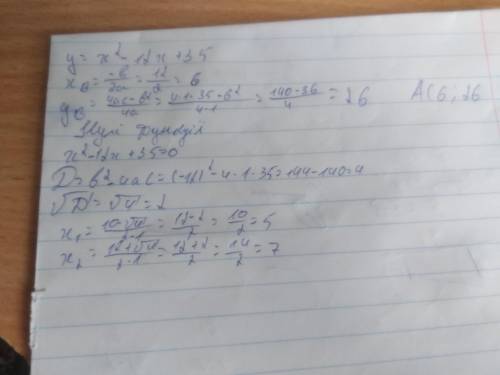 y = x² - 12x + 35
x_в = -b/2a = 12/2 = 6
y_в = 4ac-b²/4a = 4·1·35-6²/4·1 = 140-36/4 = 26 A(6; 26
Нулі функції
x² - 12x + 35 = 0
D = b² - 4ac = (-12)² - 4·1·35 = 144 - 140 = 4
√D = √4 = 2
x₁ = 10-√4/2·1 = 12-2/2 = 10/2 = 5
x₂ = 12+√4/2·1 = 12+2/2 = 14/2 = 7